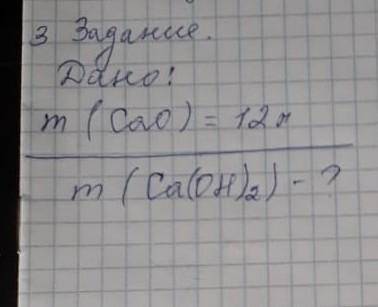 3 Задание.
Дано:
m (CaO) = 12
m (Ca(OH)₂) - ?